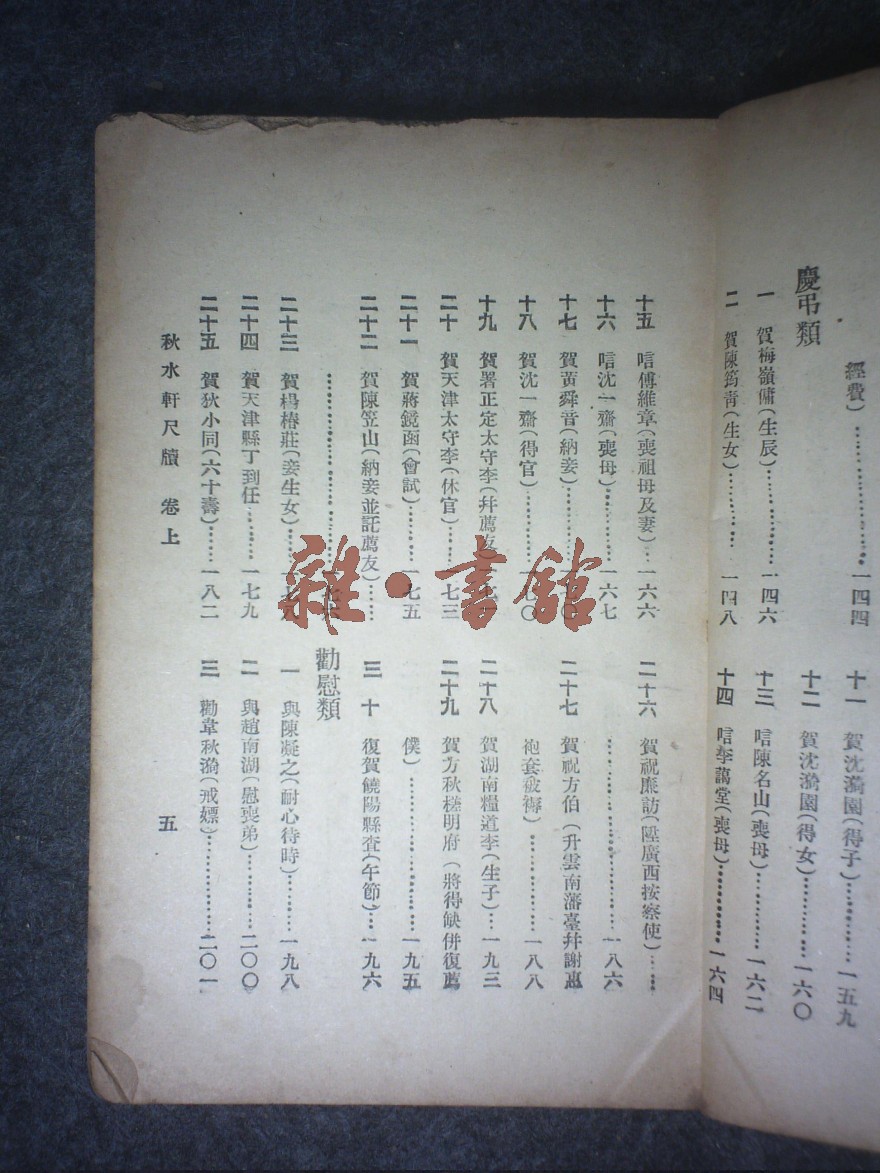 經費)……一四四
慶弔類
一 賀梅嶺傭(生辰)……一四六
二 賀陳筠青(生女)……一四八
十一 賀沈漪園(得子)……一五九
十二 賀沈漪園(得女)……一六〇
十三 唁陳名山(喪母)……一六二
十四 唁李藹堂(喪母)……一六四
十五 唁傅維章(喪祖母及妻)…一六六
十六 唁沈一齋(喪母)……一六七
十七 賀黃舜音(納妾)……
十八 賀沈一齋(得官)……一七〇
十九 賀署正定太守李(幷薦友)
二十 賀天津太守李(休官)……一七三
二十一 賀蔣鏡函(會試)……一七五
二十二 賀陳笠山(納妾並託薦友)……
……
二十三 賀楊椿莊(妾生女)……
二十四 賀天津縣丁到任……一七九
二十五 賀狄小同(六十壽)……一八二
二十六 賀祝廉訪(陞廣西按察使)……
……一八六
二十七 賀祝方伯(升雲南藩臺幷謝惠
袍套被褥)……一八八
二十八 賀湖南糧道李(生子)…一九三
二十九 賀方秋槎明府(將得缺併復薦
僕)……一九五
三十 復賀饒陽縣查(午節)…一九六
勸慰類
一 與陳凝之(耐心待時)……一九八
二 與趙南湖(慰喪弟)……二〇〇
三 勸韋秋漪(戒嫖)……二〇一
秋水軒尺牘 卷上
五
雜·書館